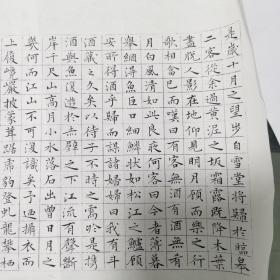 是歲十月之望步自雪堂將歸於臨皋
二客從余過黃泥之坂霜露既降木葉
盡脫人影在地仰見明月顧而樂之行
歌相畣已而嘆曰有客無酒有酒無肴
月白風清如此良夜何客曰今者薄暮
舉網得魚巨口細鱗狀如松江之鱸顧
安所得酒乎歸而謀諸婦婦曰我有斗
酒藏之久矣以待子不時之需於是攜
酒與魚復遊於赤壁之下江流有聲斷
岸千尺山高月小水落石出曾日月之
幾何而江山不可復識矣予乃攝衣而
上履巉巖披蒙茸踞虎豹登虬龍攀栖